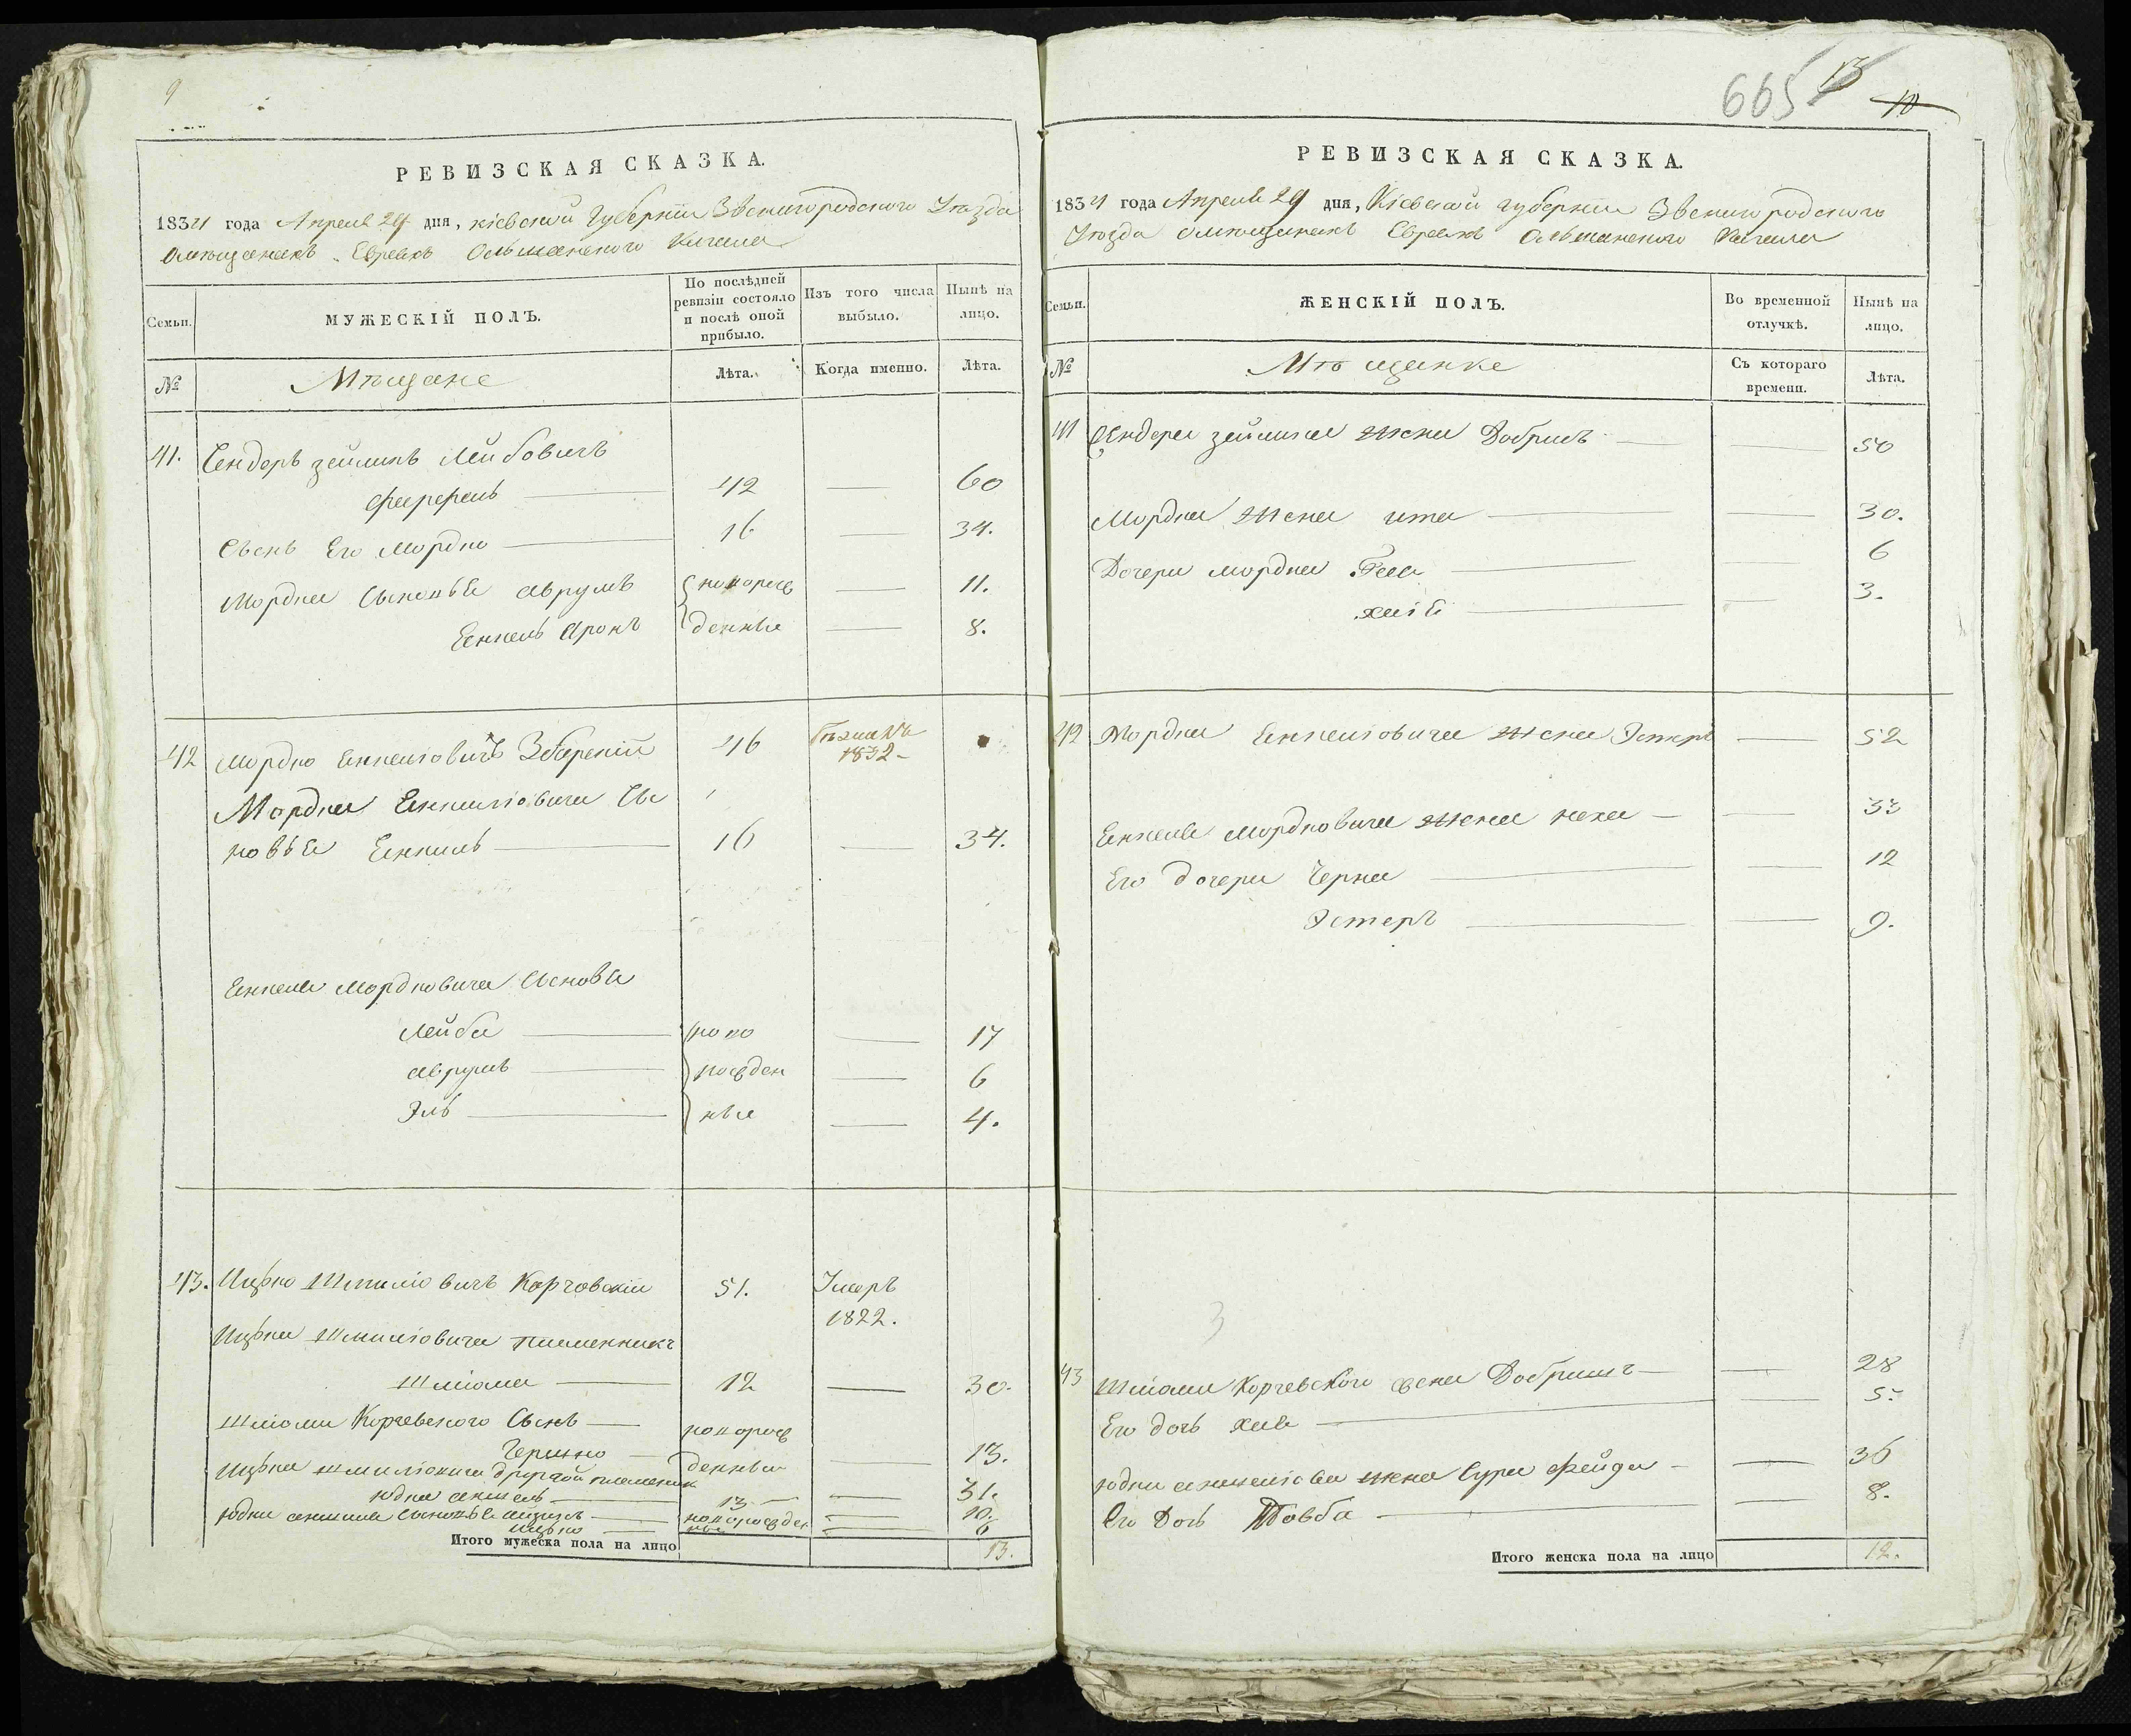 9
РЕВИЗСКАЯ СКАЗКА.
1834 года Апреля 29 дня, Кіевской Губерніи Звенигородского Уѣзда
О мѣщанахъ Евреяхъ Ольшанского Кагала
Семьи.
МУЖЕСКІЙ ПОЛЪ.
По послѣдней ревизіи состояло и послѣ оной прибыло.
Изъ того числа выбыло.
Нынѣ на лицо.
№
Мѣщане
Лѣта.
Когда именно.
Лѣта.
41. Сендеръ Лейбовичъ
42 — 60
Сынъ Его Мордко 16 — 34.
Мордка Сыновья Аврумъ новорож 11.
Аронъ денные 8.
42 Мордко 46 1832 -
Мордка
новья 16 — 34.
Мордковича Сыновья
Лейба ново 17
Аврумъ рожден 6
Эль ные 4.
43. Ицко Корчовскій 51. Умеръ
1822.
Ицка племенникъ
Шліома 12 — 30.
Шліоми Корчевского Сынъ новорож
денные 13.
Ицка другой племеник
Юдка 13 — 31.
Юдки сыновья новорожден 10.
Ицко ные 6
Итого мужеска пола на лицо 13.
665 13
10
РЕВИЗСКАЯ СКАЗКА.
1834 года Апреля 29 дня, Кіевской Губерніи Звенигородского
Уѣзда О мѣщанахъ Евреяхъ Ольшанского Кагала
Семьи.
ЖЕНСКІЙ ПОЛЪ.
Во временной отлучкѣ.
Нынѣ на лицо.
№
Мѣщанке
Съ котораго времени.
Лѣта.
41 Сендера жена Добришъ — 50
Мордка жена ита — 30.
Дочери мордка 6
хаія 3.
42 Мордка жена Эстеръ — 52
Мордковича жена неха — 33
Его дочери Черна 12
Эстеръ 9.
3
43 Шліоми Корчевского жена Добришъ — 28
Его дочь Хая 5.
Юдки жена Сура Фейда — 36
Его Дочь Товба 8.
Итого женска пола на лицо 12.